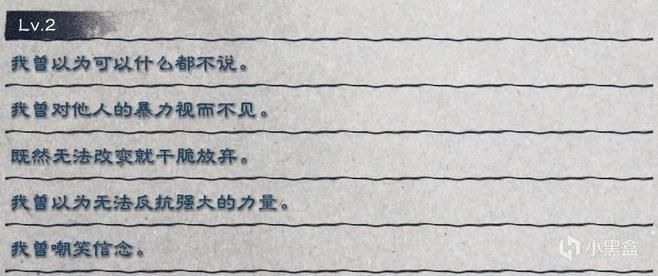 Lv.2
我曾以为可以什么都不说。
我曾对他人的暴力视而不见。
既然无法改变就干脆放弃。
我曾以为无法反抗强大的力量。
我曾嘲笑信念。
小黑盒